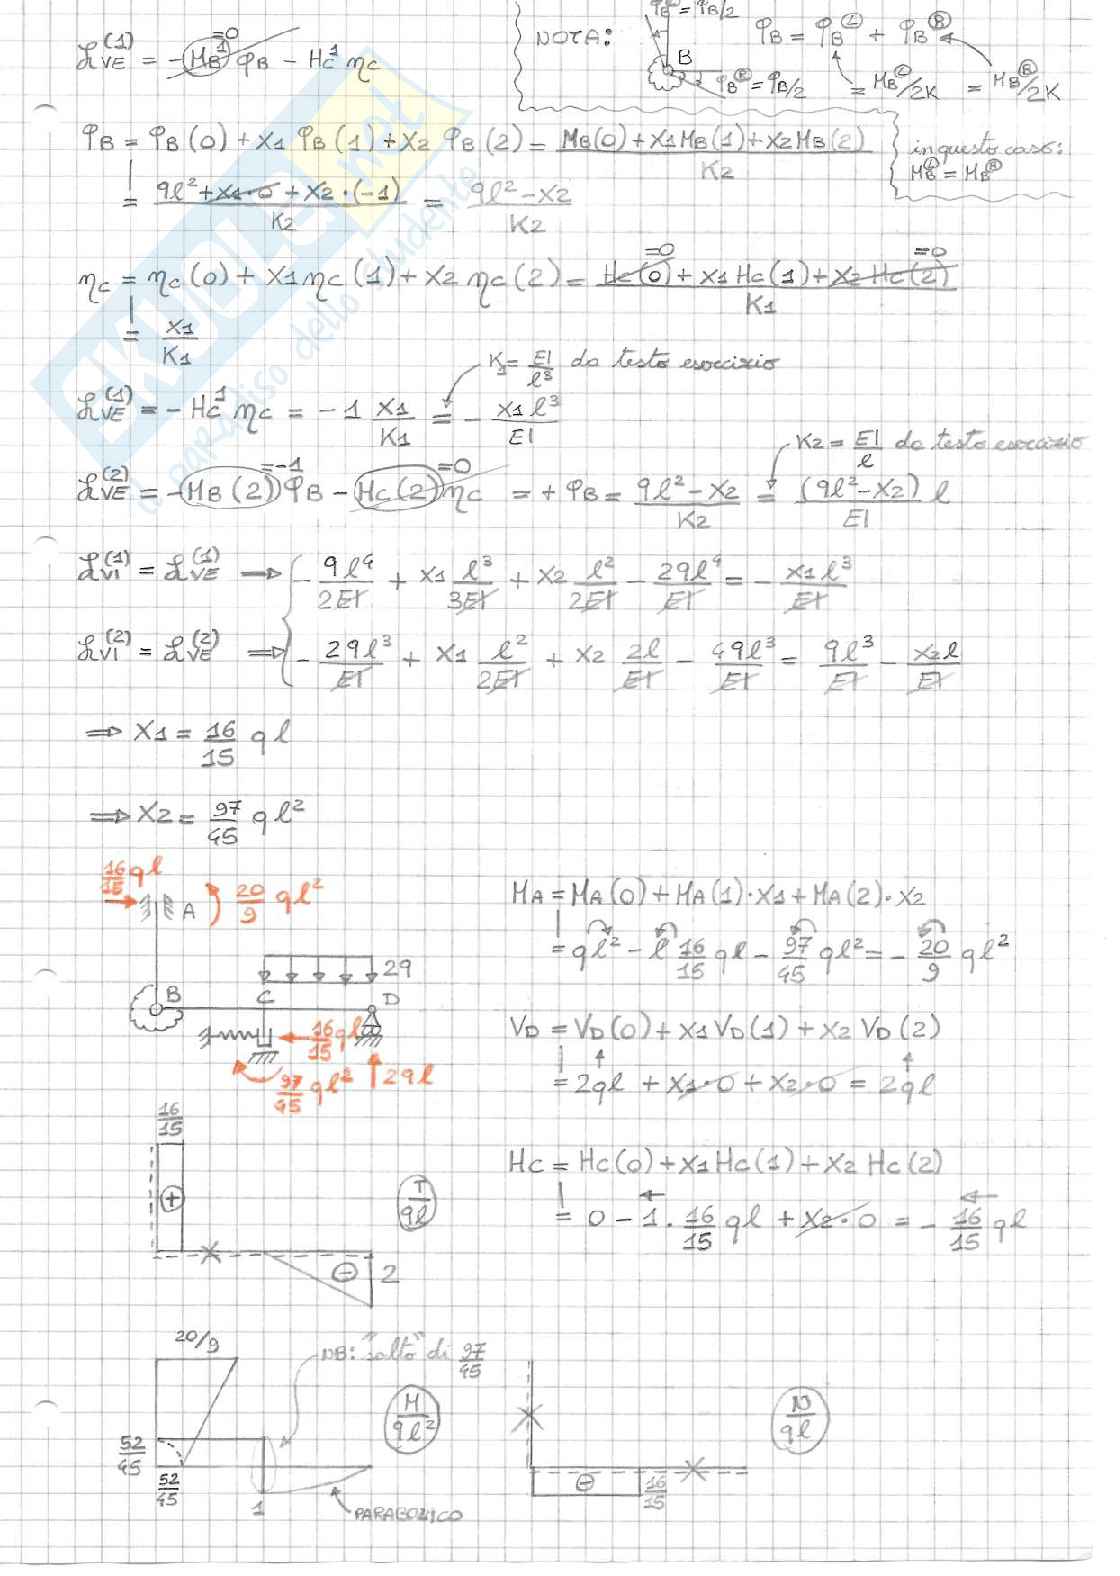 L_VE^(1) = -M_B^1 φ_B - H_C^1 η_C
=0
NOTA:
φ_B = φ_B/2
B
φ_B^(R) = φ_B/2
φ_B = φ_B^(L) + φ_B^(R)
= M_B^(L)/2K = M_B^(R)/2K
φ_B = φ_B(0) + X1 φ_B(1) + X2 φ_B(2) = (M_B(0) + X1 M_B(1) + X2 M_B(2))/K2
in questo caso:
M_B^L = M_B^R
= (ql² + X1·0 + X2·(-1))/K2 = (ql² - X2)/K2
η_C = η_C(0) + X1 η_C(1) + X2 η_C(2) = (H_C(0) + X1 H_C(1) + X2 H_C(2))/K1
=0 =0
= X1/K1
K1 = EI/l³ da testo esercizio
L_VE^(1) = - H_C^1 η_C = - 1 X1/K1 = - X1 l³/EI
K2 = EI/l da testo esercizio
L_VE^(2) = -M_B(2) φ_B - H_C(2) η_C = + φ_B = (ql² - X2)/K2 = (ql² - X2) l/EI
=-1 =0
L_VI^(1) = L_VE^(1) ⟹ - ql⁴/2EI + X1 l³/3EI + X2 l²/2EI - 2ql⁴/EI = - X1 l³/EI
L_VI^(2) = L_VE^(2) ⟹ - 2ql³/EI + X1 l²/2EI + X2 2l/EI - 4ql³/EI = ql³/EI - X2 l/EI
⟹ X1 = 16/15 ql
⟹ X2 = 97/45 ql²
16/15 ql
A
20/9 ql²
2q
B
C
D
16/15 ql
97/45 ql²
2ql
M_A = M_A(0) + M_A(1)·X1 + M_A(2)·X2
= ql² - l 16/15 ql - 97/45 ql² = - 20/9 ql²
V_D = V_D(0) + X1 V_D(1) + X2 V_D(2)
= 2ql + X1·0 + X2·0 = 2ql
H_C = H_C(0) + X1 H_C(1) + X2 H_C(2)
= 0 - 1 · 16/15 ql + X2·0 = - 16/15 ql
16/15
+
T/ql
-
2
20/9
NB: "salto" di 97/45
M/ql²
52/45
52/45
1
PARABOLICO
N/ql
-
16/15
SKUOLA.net
il paradiso dello studente